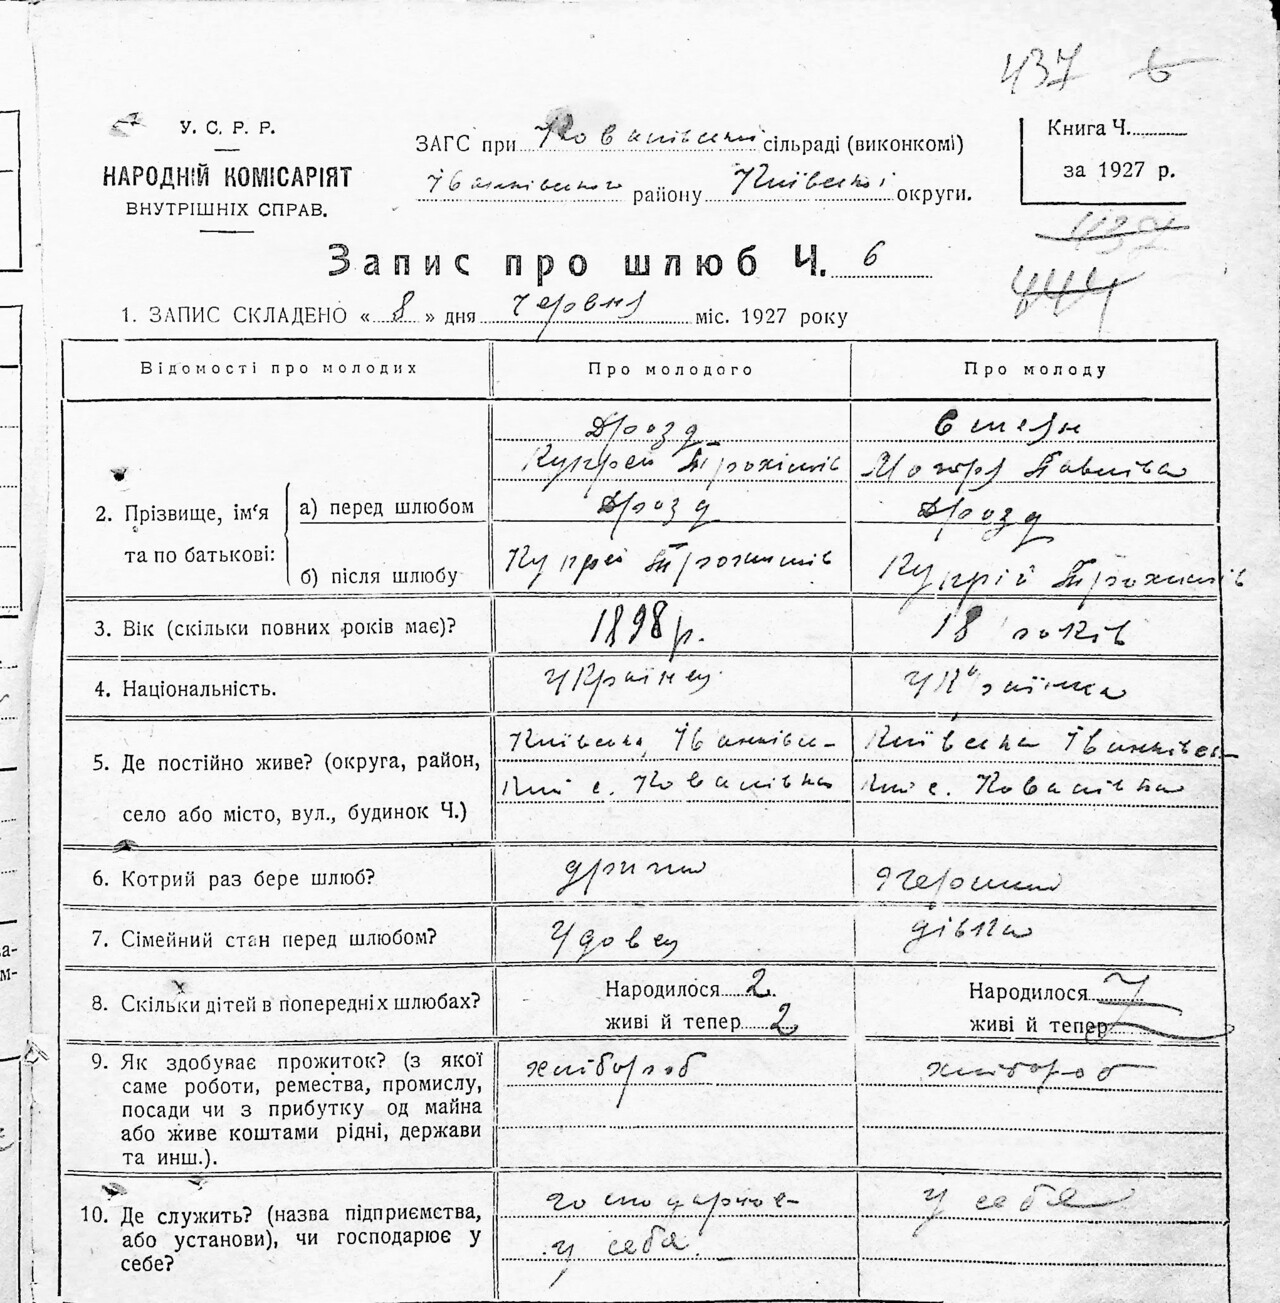 437 б
У. С. Р. Р.
НАРОДНІЙ КОМІСАРІЯТ
ВНУТРІШНІХ СПРАВ.
ЗАГС при Кованівській сільраді (виконкомі)
Іванківського району Київської округи.
Книга Ч.
за 1927 р.
437
444
Запис про шлюб Ч. 6
1. ЗАПИС СКЛАДЕНО « 8 » дня червня міс. 1927 року
Відомості про молодих
Про молодого
Про молоду
2. Прізвище, ім'я та по батькові:
а) перед шлюбом
Дрозд
Купрей Трохимів
Павлівна
б) після шлюбу
Дрозд
Купрей Трохимів
Дрозд
Купрій Трохимів
3. Вік (скільки повних років має)?
1898 р.
18 років
4. Національність.
Українец
Українка
5. Де постійно живе? (округа, район,
село або місто, вул., будинок Ч.)
Київська, Іванківсь-
кий с. Ковалівка
Київська Іванківсь-
кий с. Ковалівка
6. Котрий раз бере шлюб?
другий
перший
7. Сімейний стан перед шлюбом?
Удовец
дівка
8. Скільки дітей в попередніх шлюбах?
Народилося 2.
живі й тепер 2
Народилося
живі й тепер
9. Як здобуває прожиток? (з якої
саме роботи, ремества, промислу,
посади чи з прибутку од майна
або живе коштами рідні, держави
та инш.).
хлібороб
хлібороб
10. Де служить? (назва підприємства,
або установи), чи господарює у
себе?
господарює
у себе
у себе